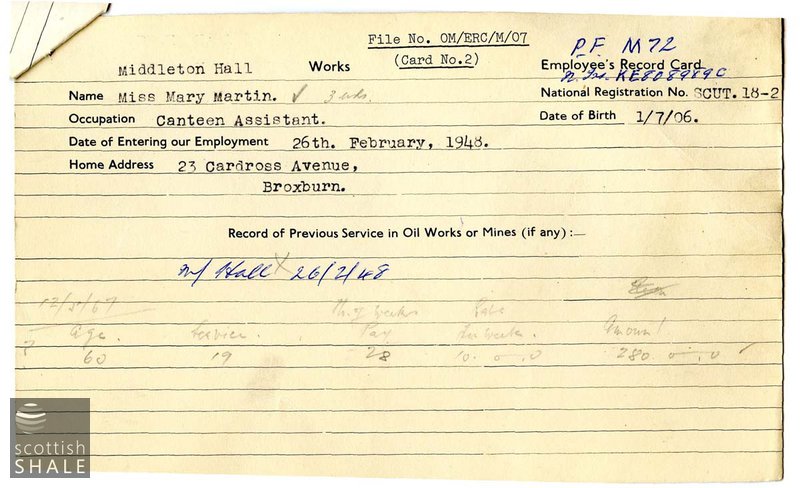 File No. OM/ERC/M/07
P.F. M72
Middleton Hall Works (Card No.2) Employee's Record Card
Name Miss Mary Martin. ✓ 3 wks. National Registration No. SCUT. 18-2
Occupation Canteen Assistant. Date of Birth 1/7/06.
Date of Entering our Employment 26th. February, 1948.
Home Address 23 Cardross Avenue,
Broxburn.
Record of Previous Service in Oil Works or Mines (if any) :—
M/ Hall 26/2/48
No. of weeks Rate
Age. Service. Pay Per week. Amount
60 19 28 10. 0. 0 280. 0. 0 ✓
scottish
SHALE